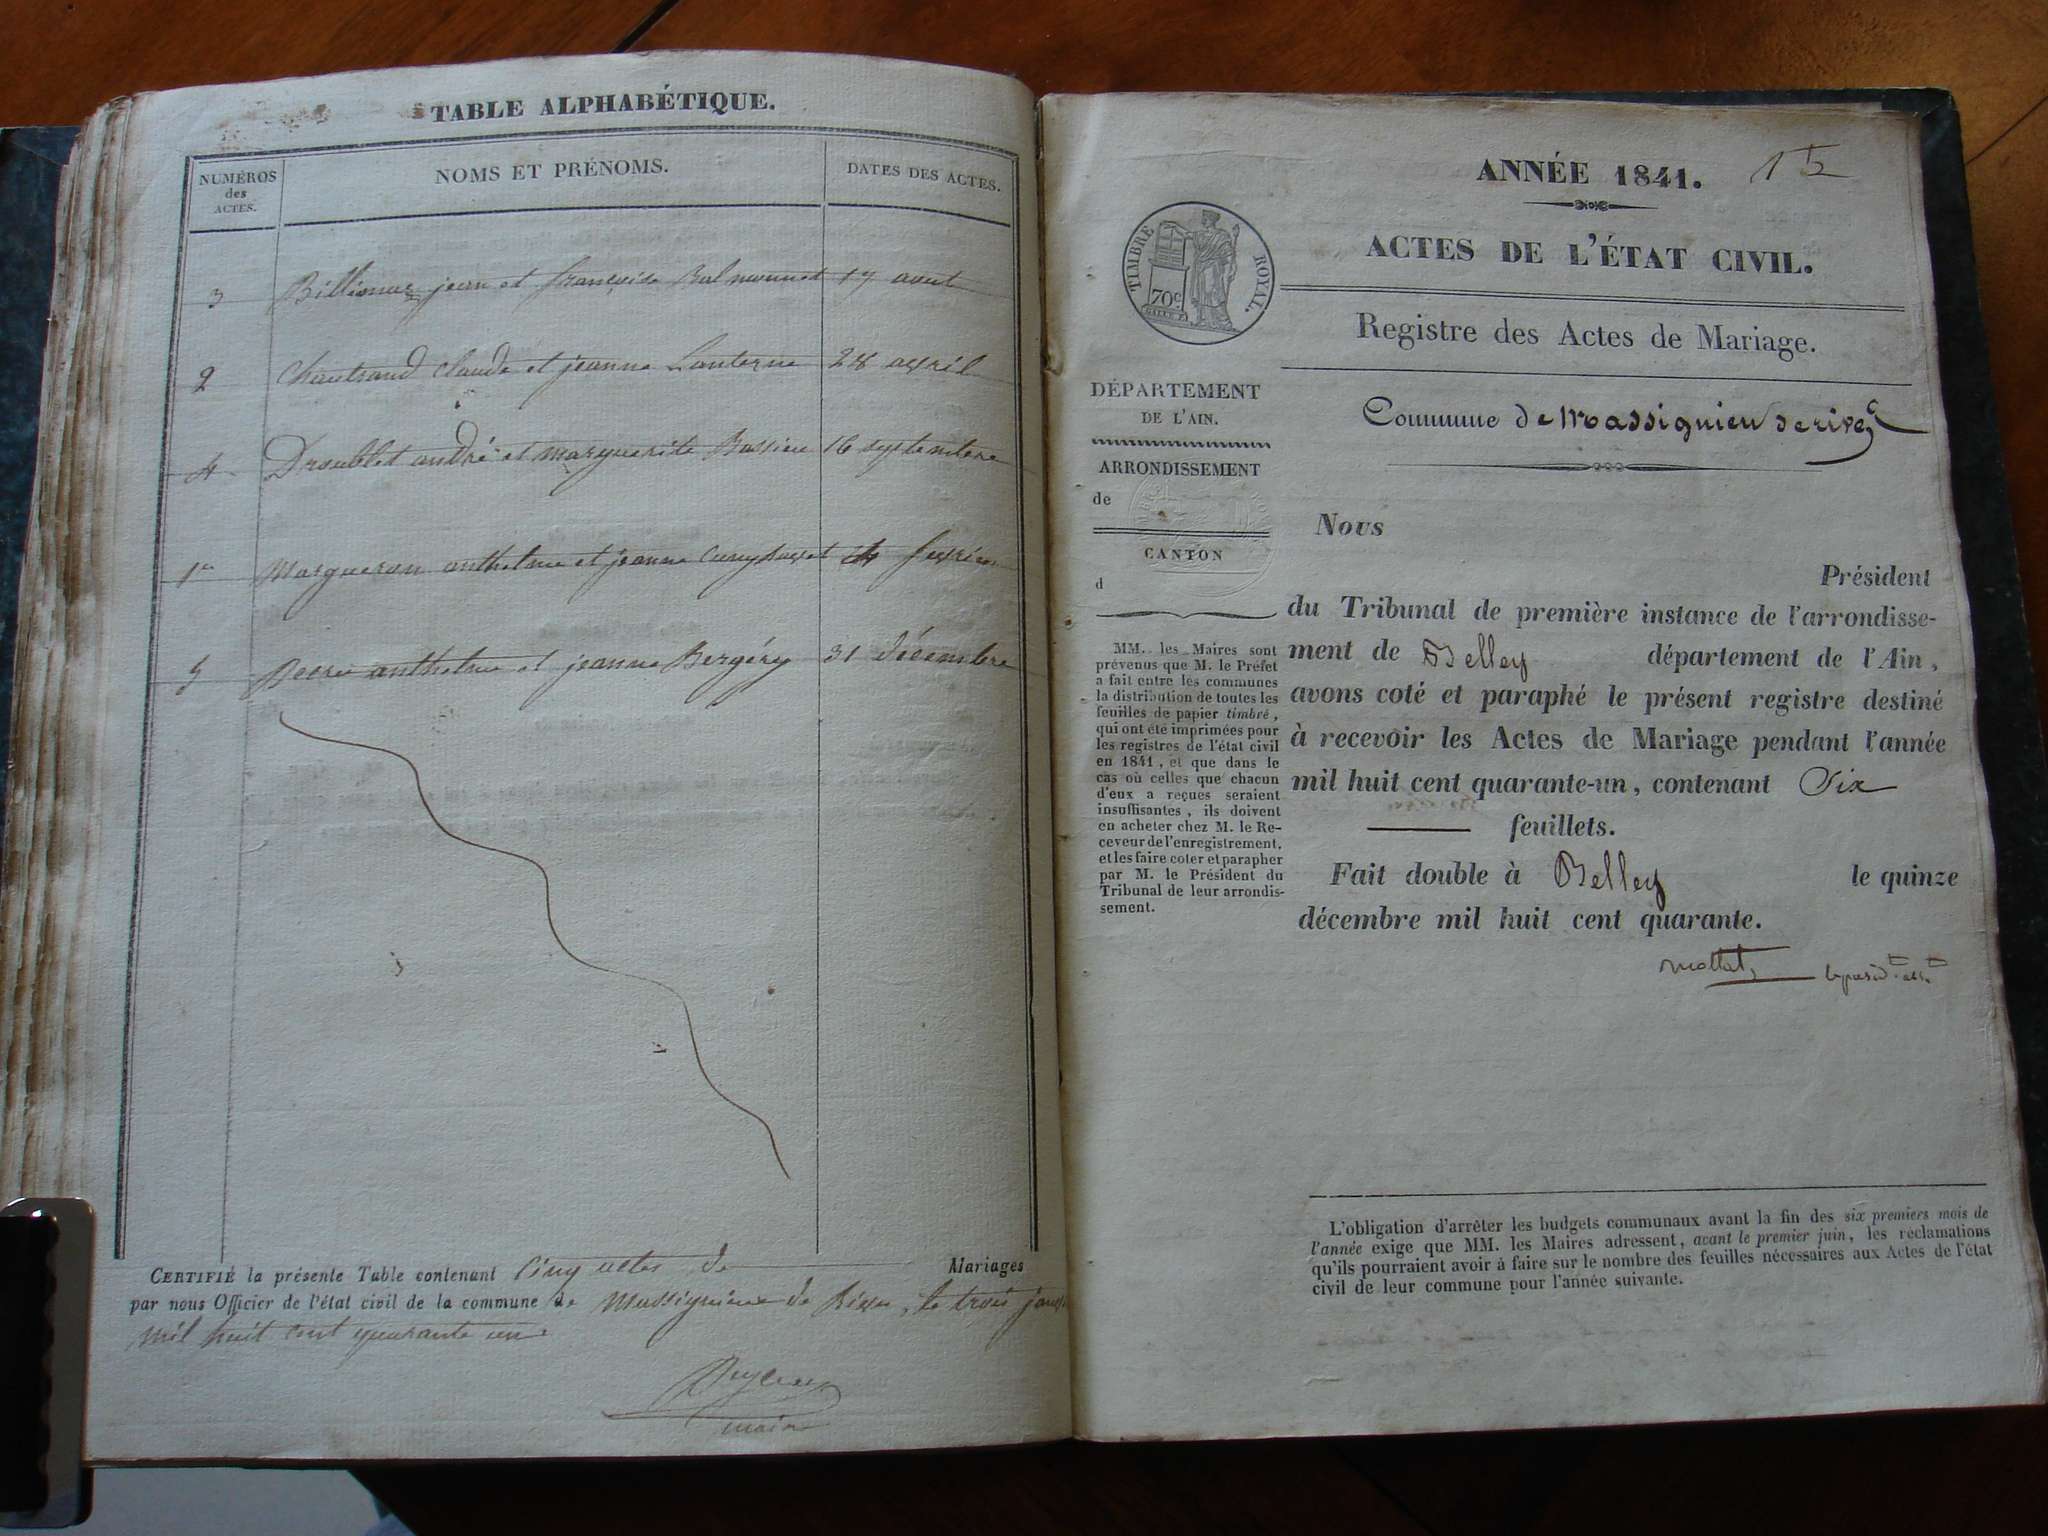 TABLE ALPHABÉTIQUE.
NUMÉROS
des
ACTES.
NOMS ET PRÉNOMS.
DATES DES ACTES.
3 jean et françoise 17 aout
2 Chautrand Claude et jeanne Lanterne 28 avril
4 Droublet andré et marguerite 16 septembre
1er Margueron anthelme et jeanne 4 fevrier
5 anthelme et jeanne Bergéry 31 décembre
CERTIFIÉ la présente Table contenant Cinq actes de Mariages
par nous Officier de l'état civil de la commune de Massignieux de Rives, le trois
mil huit cent quarante un
maire
ANNÉE 1841.
TIMBRE ROYAL.
70c
ACTES DE L'ÉTAT CIVIL.
Registre des Actes de Mariage.
Commune de Massignieu de rives
DÉPARTEMENT
DE L'AIN.
ARRONDISSEMENT
de
CANTON
d
MM. les Maires sont
prévenus que M. le Préfet
a fait entre les communes
la distribution de toutes les
feuilles de papier timbré,
qui ont été imprimées pour
les registres de l'état civil
en 1841, et que dans le
cas où celles que chacun
d'eux a reçues seraient
insuffisantes, ils doivent
en acheter chez M. le Re-
ceveur de l'enregistrement,
et les faire coter et parapher
par M. le Président du
Tribunal de leur arrondis-
sement.
Nous
Président
du Tribunal de première instance de l'arrondisse-
ment de Belley département de l'Ain,
avons coté et paraphé le présent registre destiné
à recevoir les Actes de Mariage pendant l'année
mil huit cent quarante-un, contenant Six
feuillets.
Fait double à Belley le quinze
décembre mil huit cent quarante.
L'obligation d'arrêter les budgets communaux avant la fin des six premiers mois de
l'année exige que MM. les Maires adressent, avant le premier juin, les réclamations
qu'ils pourraient avoir à faire sur le nombre des feuilles nécessaires aux Actes de l'état
civil de leur commune pour l'année suivante.